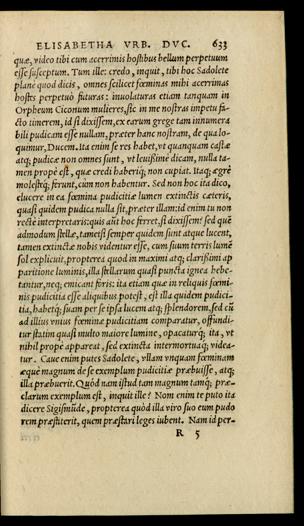 ELISABETHA VRB. DVC. 633
quæ, video tibi cum acerrimis hostibus bellum perpetuum
esse susceptum. Tum ille: credo, inquit, tibi hoc Sadolete
plane quod dicis, omnes scilicet fœminas mihi acerrimas
hostes perpetuò futuras: inuolaturas etiam tanquam in
Orpheum Ciconum mulieres, sic in me nostras impetu fa-
cto timerem, id si dixissem, ex earum grege tam innumera
bili pudicam esse nullam, præter hanc nostram, de qua lo-
quimur, Ducem. Ita enim se res habet, vt quanquam castæ
atq; pudicæ non omnes sunt, vt leuissime dicam, nulla ta-
men propè est, quæ credi haberiq; non cupiat. Itaq; ægrè
molesteq; ferunt, cùm non habentur. Sed non hoc ita dico,
elucere in ea fœmina pudicitiæ lumen extinctis cæteris,
quasi quidem pudica nulla sit, præter illam: id enim tu non
recte interpretaris: quis aut hoc ferret, si dixissem? sed quē
admodum stellæ, tametsi semper quidem sunt atque lucent,
tamen extinctæ nobis videntur esse, cum suum terris lumē
sol explicuit, propterea quod in maximi atq; clarissimi ap
paritione luminis, illa stellarum quasi puncta ignea hebe-
tantur, neq; emicant foris: ita etiam quæ in reliquis fœmi-
nis pudicitia esse aliquibus potest, est illa quidem pudici-
tia, habetq; suam per se ipsa lucem atq; splendorem, sed cū
ad illius vnius fœminæ pudicitiam comparatur, offundi-
tur statim quasi multo maiore lumine, opacaturq; ita, vt
nihil prope appareat, sed extincta intermortuaq; videa-
tur. Caue enim putes Sadolete, vllam vnquam fœminam
æquè magnum de se exemplum pudicitiæ præbuisse, atq;
illa præbuerit. Quòd nam istud tam magnum tamq; præ-
clarum exemplum est, inquit ille? Nom enim te puto ita
dicere Sigismūde, propterea quòd illa viro suo eum pudo
rem præstiterit, quem præstari leges iubent. Nam id per-
R 5